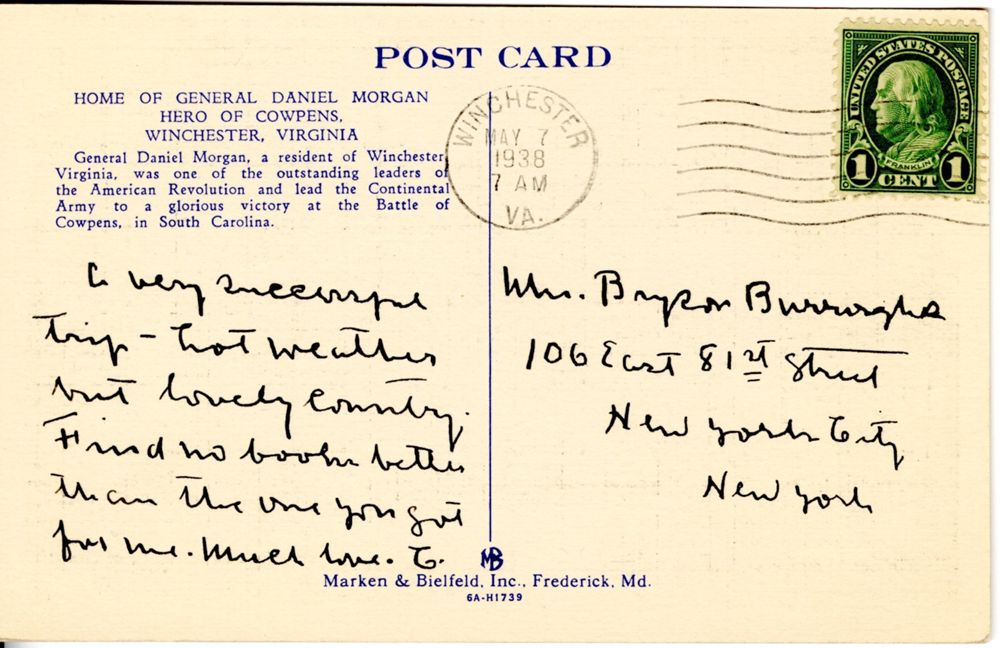 POST CARD
HOME OF GENERAL DANIEL MORGAN
HERO OF COWPENS,
WINCHESTER, VIRGINIA
General Daniel Morgan, a resident of Winchester
Virginia, was one of the outstanding leaders of
the American Revolution and lead the Continental
Army to a glorious victory at the Battle of
Cowpens, in South Carolina.
WINCHESTER
MAY 7
1938
7 AM
VA.
UNITED STATES POSTAGE
FRANKLIN
1 CENT 1
A very successful
trip - hot weather
but lovely country.
Find no book better
than the one you got
for me. Much love.
Mrs. Bryson Burroughs
106 East 81st Street
New York City
New York
MB
Marken & Bielfeld, Inc., Frederick, Md.
6A-H1739